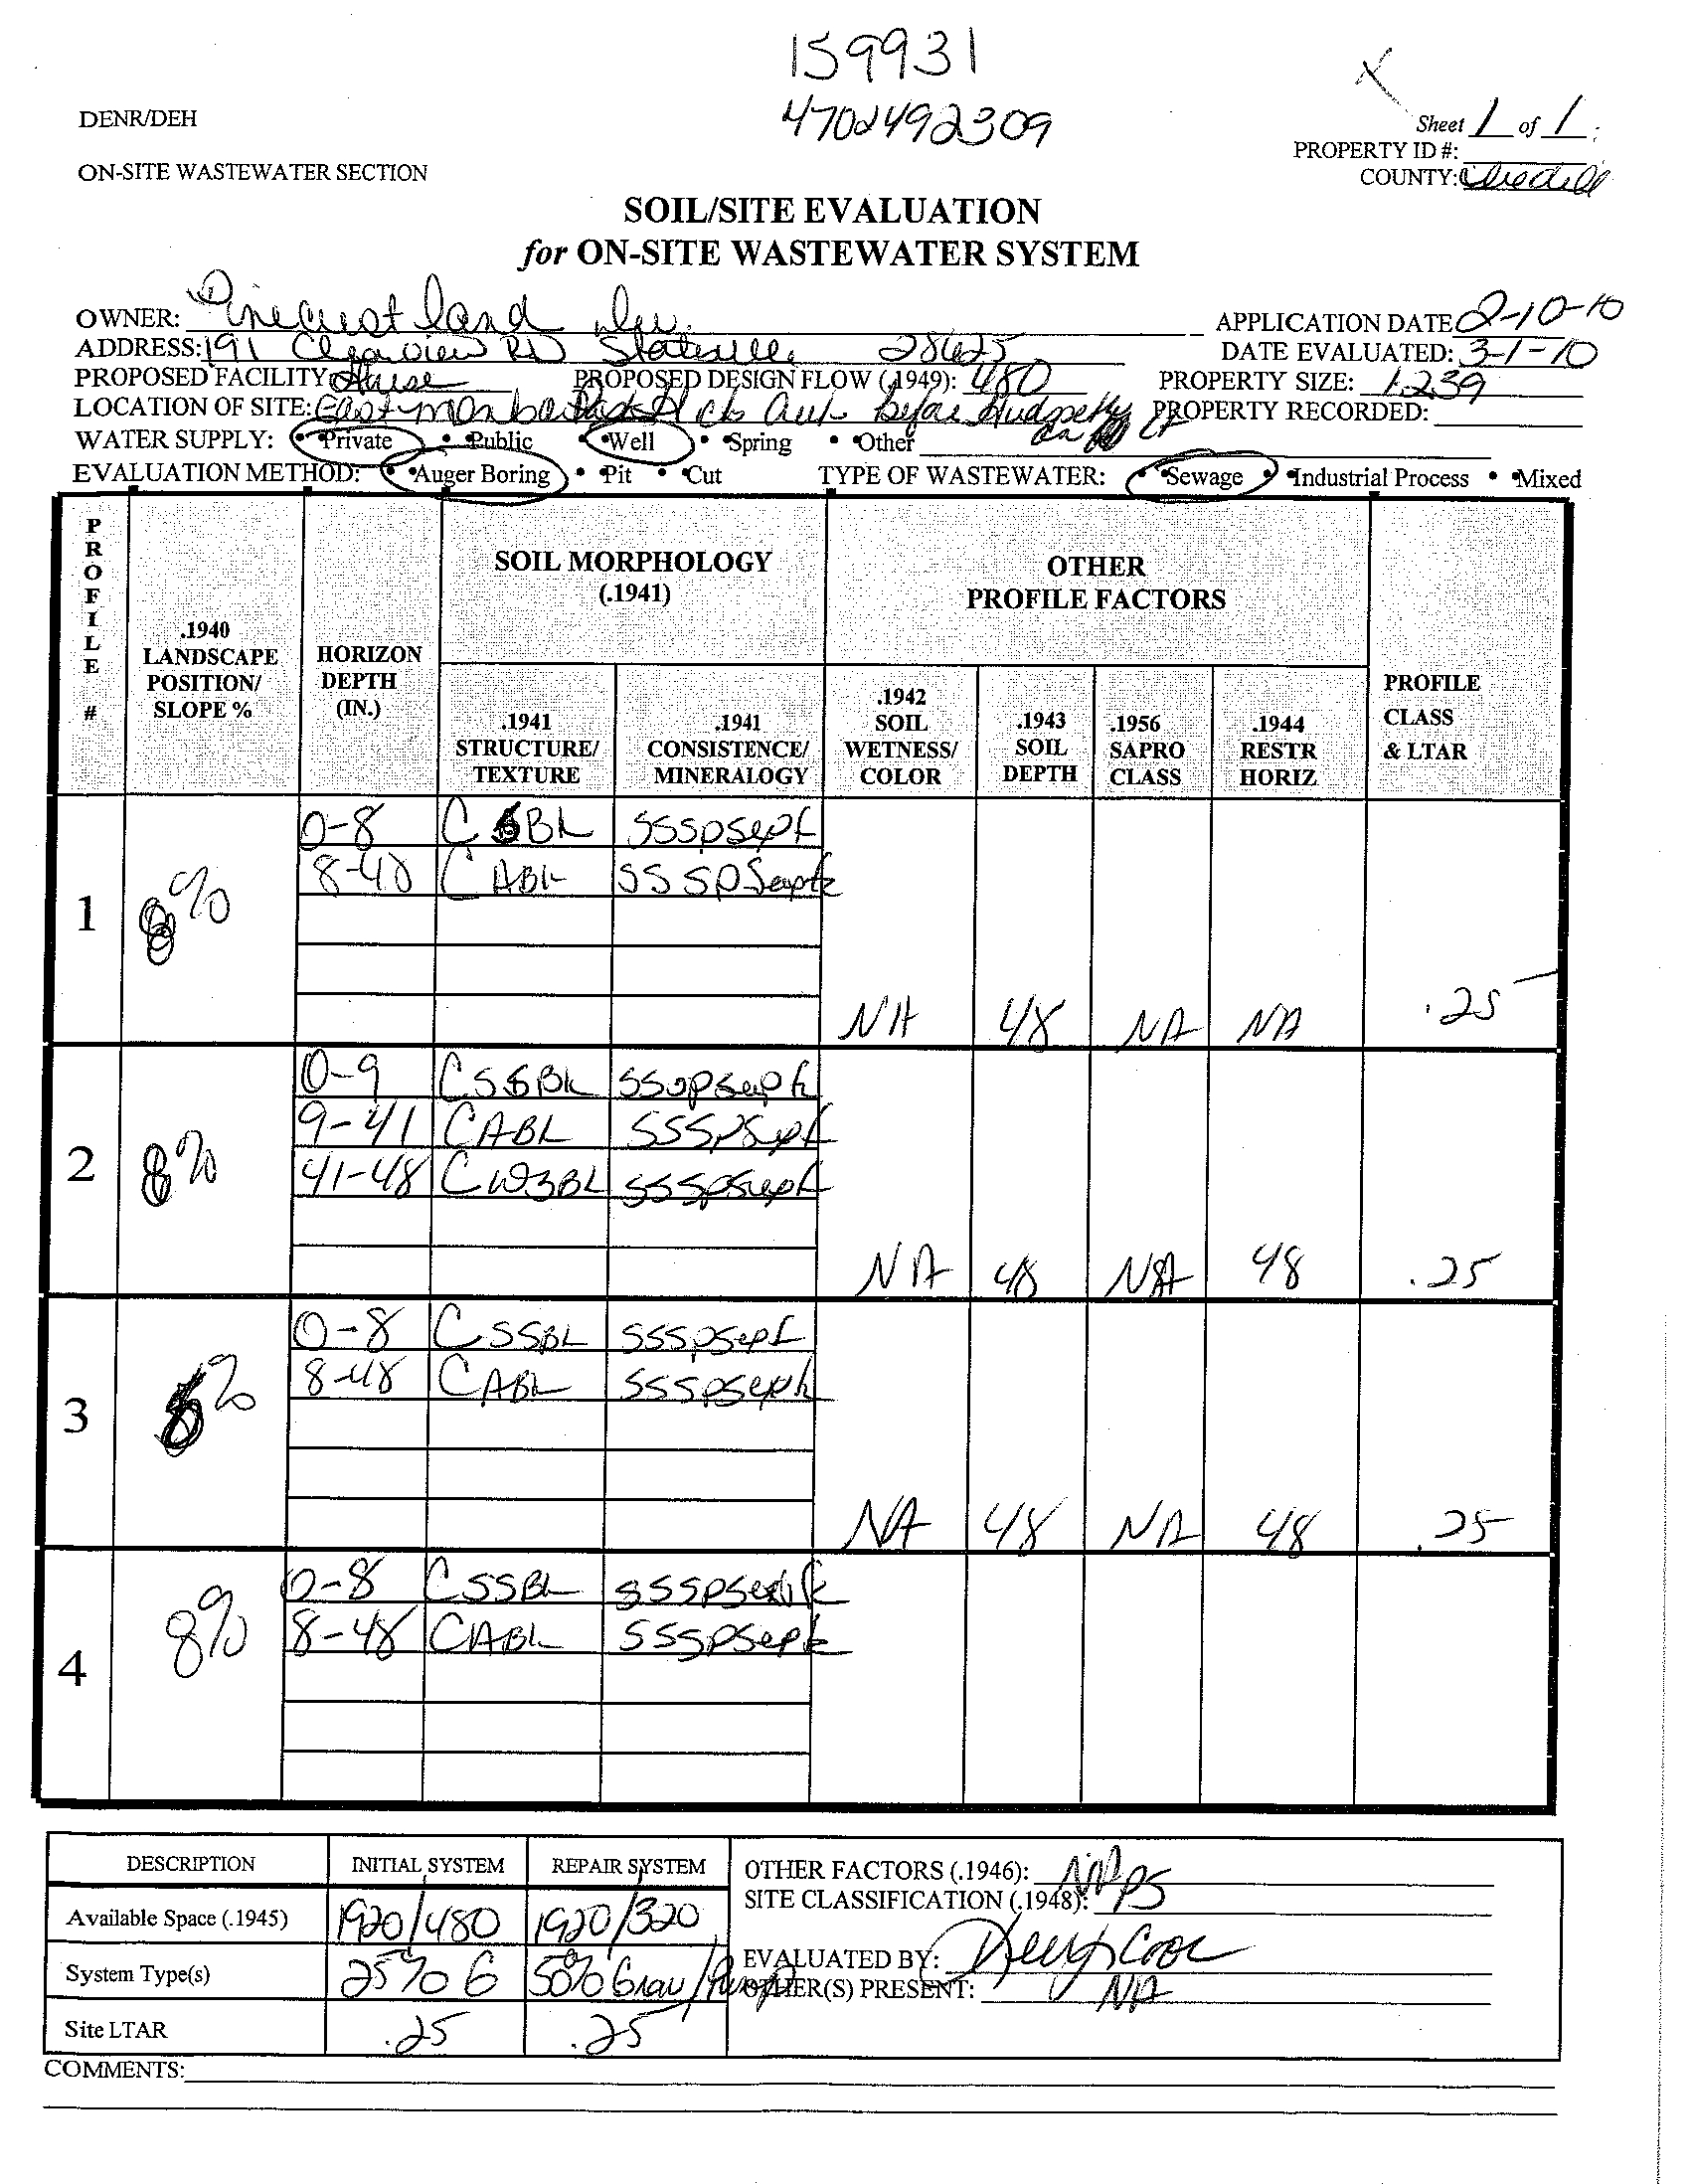 159931
4702492309
DENR/DEH
Sheet 1 of 1
PROPERTY ID #:
ON-SITE WASTEWATER SECTION
COUNTY: Iredell
SOIL/SITE EVALUATION
for ON-SITE WASTEWATER SYSTEM
OWNER: Pinecrest land APPLICATION DATE 2-10-10
ADDRESS: 191 Clearview RD Statesville 28625 DATE EVALUATED: 3-1-10
PROPOSED FACILITY House PROPOSED DESIGN FLOW (.1949): 480 PROPERTY SIZE: 1.239
LOCATION OF SITE: East before PROPERTY RECORDED:
WATER SUPPLY: • Private • Public • Well • Spring • Other
EVALUATION METHOD: • Auger Boring • Pit • Cut TYPE OF WASTEWATER: • Sewage • Industrial Process • Mixed
PROFILE #
.1940 LANDSCAPE POSITION/ SLOPE %
HORIZON DEPTH (IN.)
SOIL MORPHOLOGY (.1941)
OTHER PROFILE FACTORS
.1941 STRUCTURE/ TEXTURE
.1941 CONSISTENCE/ MINERALOGY
.1942 SOIL WETNESS/ COLOR
.1943 SOIL DEPTH
.1956 SAPRO CLASS
.1944 RESTR HORIZ
PROFILE CLASS & LTAR
0-8 C SBK SSSPSexpk
8-48 C ABK SSSPSexpk
1 8%
NA 48 NA NA .25
0-9 CSSBK SSSPSexpk
9-41 CABK SSSPSexpk
2 8% 41-48 C SSSPSexpk
NA 48 NA 48 .25
0-8 CSSBK SSSPSexpk
8-48 CABK SSSPSexpk
3 %
NA 48 NA 48 .25
0-8 CSSBK SSSPSexpk
4 8% 8-48 CABK SSSPSexpk
DESCRIPTION INITIAL SYSTEM REPAIR SYSTEM OTHER FACTORS (.1946): NA
Available Space (.1945) 1920/480 1920/320 SITE CLASSIFICATION (.1948): PS
System Type(s) 25% G 50% Grav/Pump EVALUATED BY:
OTHER(S) PRESENT: NA
Site LTAR .25 .25
COMMENTS: